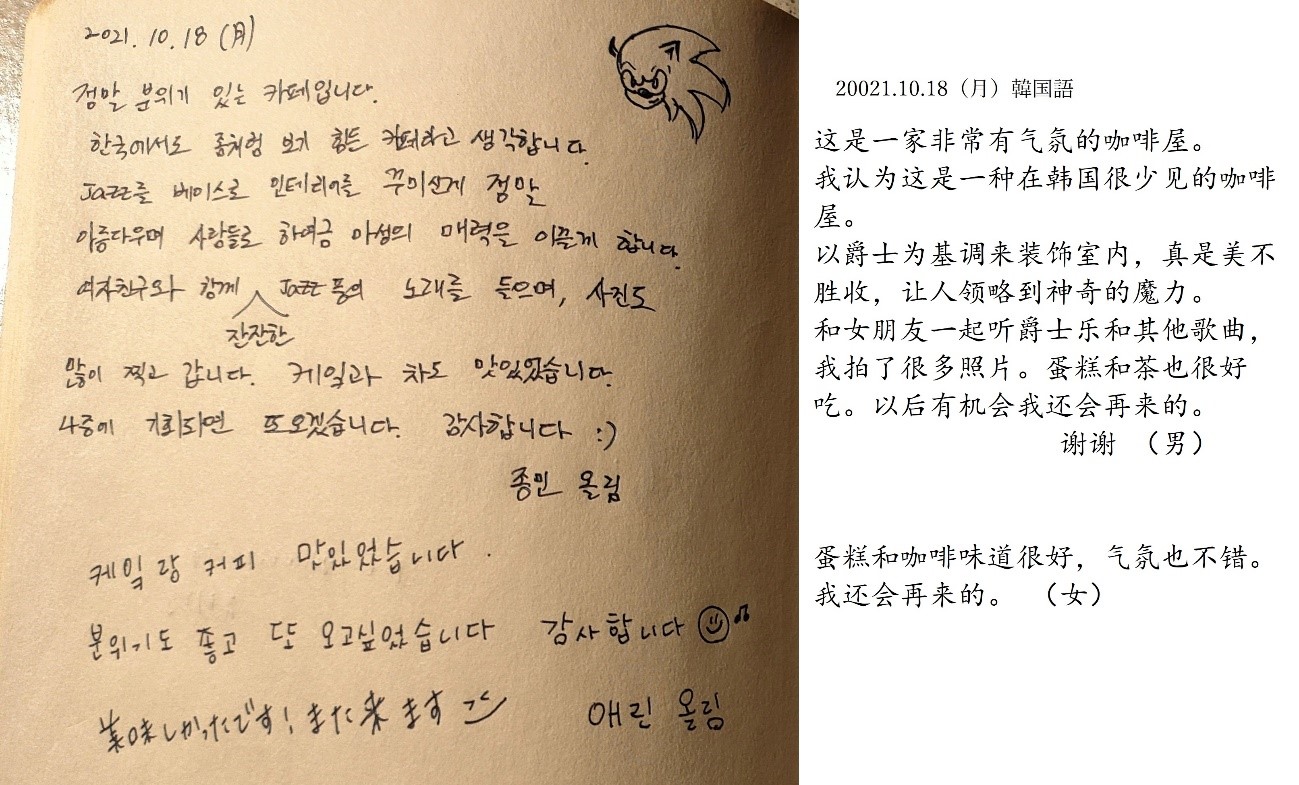 2021.10.18 (月)
정말 분위기 있는 카페입니다.
한국에서도 좀처럼 보기 힘든 카페라고 생각합니다.
Jazz를 베이스로 인테리어를 꾸미신게 정말
아름다우며 사람들로 하여금 마성의 매력을 이끌게 합니다.
여자친구와 함께 잔잔한 Jazz풍의 노래를 들으며, 사진도
많이 찍고 갑니다. 케잌과 차도 맛있었습니다.
나중에 기회되면 또오겠습니다. 감사합니다 :)
종민 올림
케잌랑 커피 맛있었습니다.
분위기도 좋고 또 오고싶었습니다 감사합니다
美味しかったです! また来ます
애린 올림
20021.10.18（月）韓国語
这是一家非常有气氛的咖啡屋。
我认为这是一种在韩国很少见的咖啡
屋。
以爵士为基调来装饰室内，真是美不
胜收，让人领略到神奇的魔力。
和女朋友一起听爵士乐和其他歌曲，
我拍了很多照片。蛋糕和茶也很好
吃。以后有机会我还会再来的。
谢谢 （男）
蛋糕和咖啡味道很好，气氛也不错。
我还会再来的。 （女）